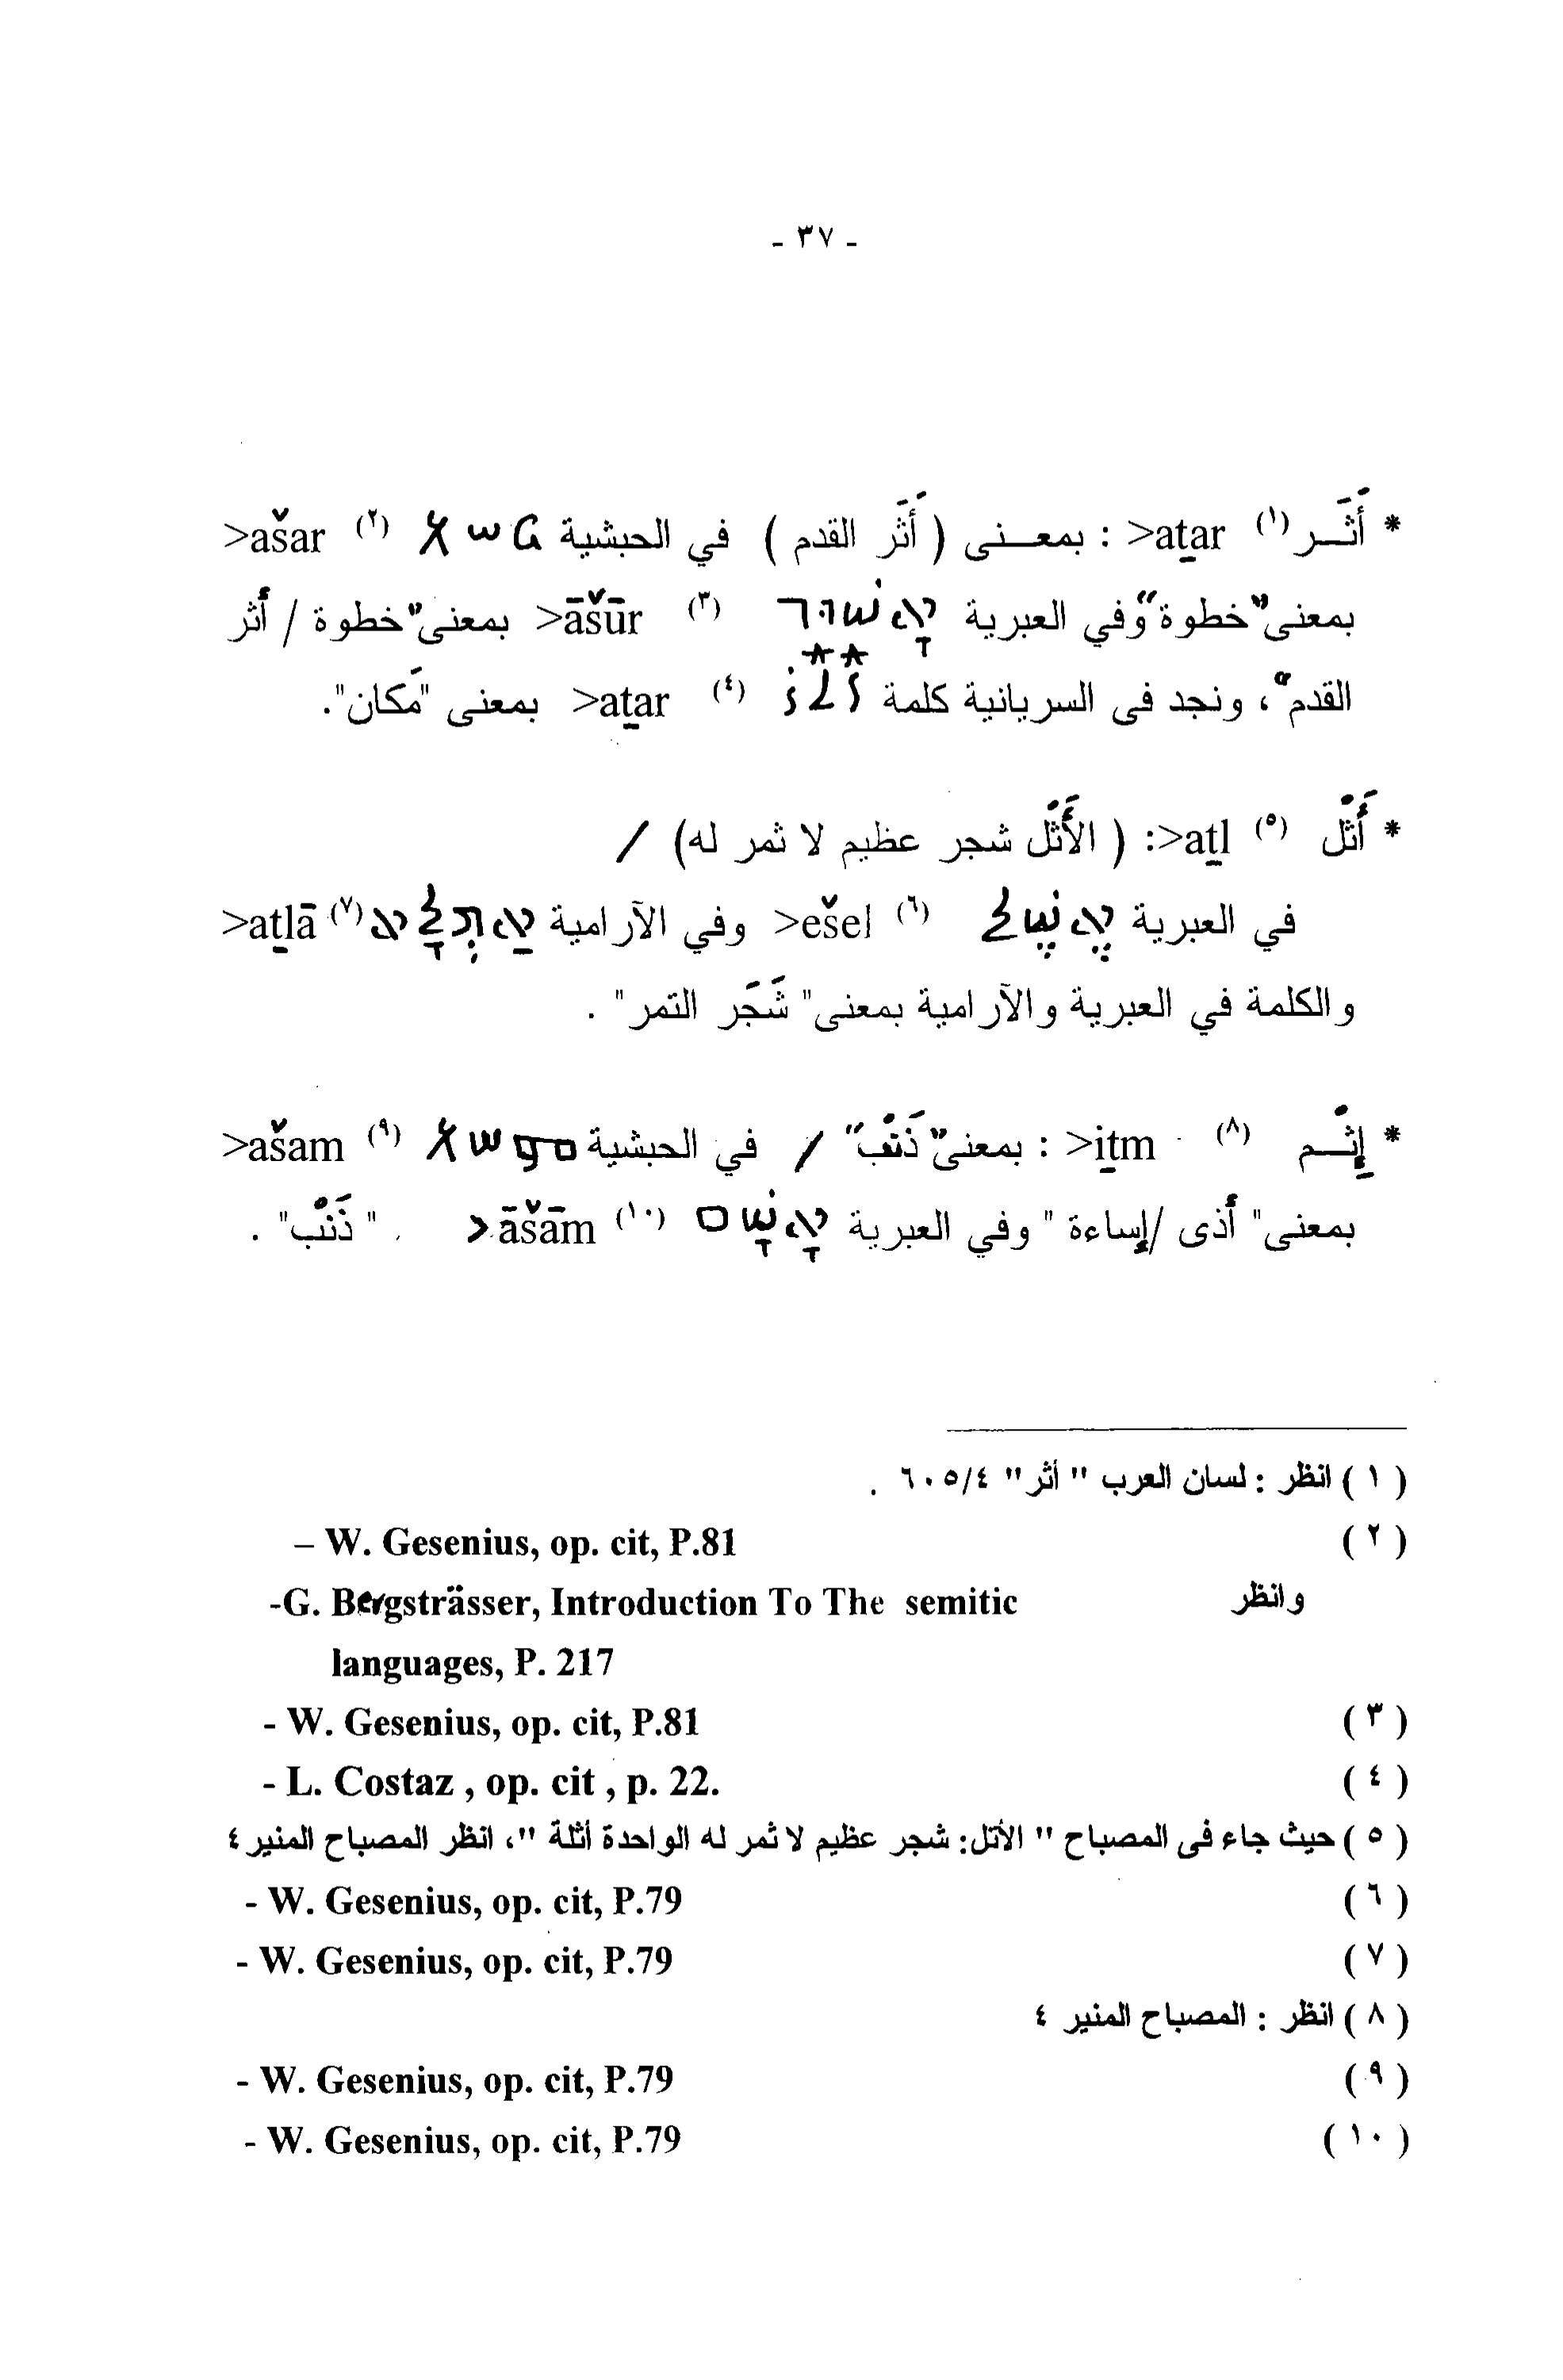 - ٣٧ -
* أَثَــر (١) >aṯar : بمعـــنى ( أَثَر القدم ) في الحبشية አሠረ (٢) >ašar
بمعنى "خطوة" وفي العبرية אָשׁוּר (٣) >āšūr بمعنى "خطوة / أثر
القدم"، ونجد فى السريانية كلمة ܐܬܪ (٤) >aṯar بمعنى "مَكان".
* أَثْل (٥) >aṯl: ( الأَثْل شجر عظيم لا ثمر له) /
في العبرية אֵשֶׁל (٦) >ešel وفي الآرامية אַתְלָא (٧) >aṯlā
والكلمة في العبرية والآرامية بمعنى" شَجَر التمر" .
* إِثْــم (٨) >iṯm : بمعنى "ذَنْب" / في الحبشية አሠመ (٩) >ašam
بمعنى" أذى /إساءة " وفي العبرية אָשָׁם (١٠) >āšām " ذَنْب" .
( ١ ) انظر : لسان العرب " أثر" ٤/٥-٦ .
( ٢ ) – W. Gesenius, op. cit, P.81
وانظر -G. Bergsträsser, Introduction To The semitic
languages, P. 217
( ٣ ) - W. Gesenius, op. cit, P.81
( ٤ ) - L. Costaz , op. cit , p. 22.
( ٥ ) حيث جاء فى المصباح " الأثل: شجر عظيم لا ثمر له الواحدة أثلة "، انظر المصباح المنير ٤
( ٦ ) - W. Gesenius, op. cit, P.79
( ٧ ) - W. Gesenius, op. cit, P.79
( ٨ ) انظر : المصباح المنير ٤
( ٩ ) - W. Gesenius, op. cit, P.79
( ١٠ ) - W. Gesenius, op. cit, P.79